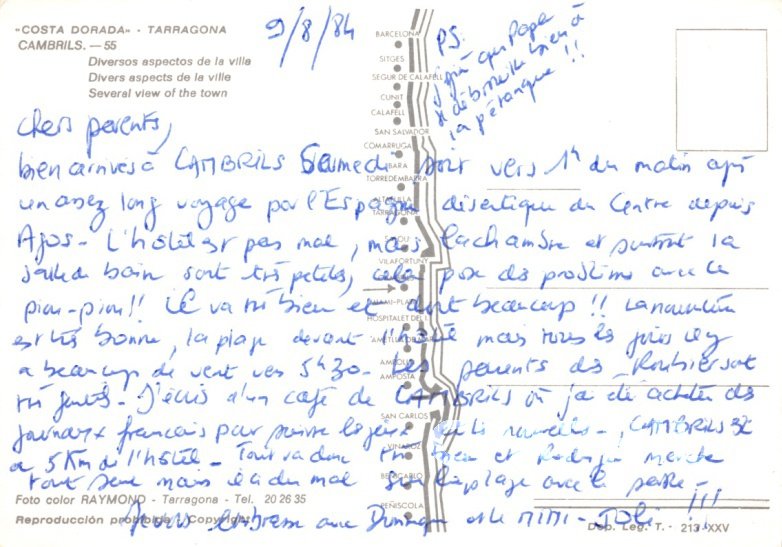 "COSTA DORADA" - TARRAGONA
CAMBRILS. — 55
Diversos aspectos de la villa
Divers aspects de la ville
Several view of the town
9/8/84
PS.
j'espère que Papa
se débrouille bien à
la pétanque !!
BARCELONA
SITGES
SEGUR DE CALAFELL
CUNIT
CALAFELL
SAN SALVADOR
COMARRUGA
BARA
TORREDEMBARRA
ALTAFULLA
TARRAGONA
VILAFORTUNY
MIAMI-PLAYA
HOSPITALET DEL I.
AMETLLA DE MAR
AMPOLLA
AMPOSTA
SAN CARLOS
VINAROZ
BENICARLO
PEÑISCOLA
chers parents,
bien arrivés à CAMBRILS Samedi soir vers 1h du matin après
un assez long voyage par l'Espagne désertique du Centre depuis
L'hôtel est pas mal, mais la chambre et surtout la
salle de bain sont très petites, cela pose des problèmes avec le
piou-piou!! il va très bien et dort beaucoup !! La nourriture
est très bonne, la plage devant l'hôtel mais tous les jours il y
a beaucoup de vent vers 5h30. Les parents des sont
très gentils. J'écris d'un café de CAMBRILS où j'ai été acheter des
journaux français pour suivre les jeux et les nouvelles. CAMBRILS est
à 5 Km de l'hôtel. Tout va donc très bien et Rodrigue marche
tout seul mais il a du mal sur la plage avec le sable.
Je vous embrasse avec Dominique et le MIMI-JOLI !!!
Foto color RAYMOND - Tarragona - Tel. 20 26 35
Reproducción prohibida - Copyright
Dep. Leg. T. - 213-XXV